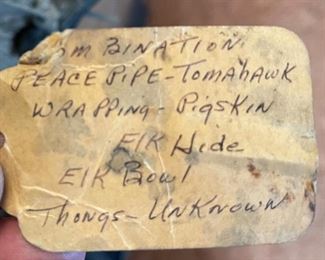 om BINATION
PEACE PIPE-TOMAHAWK
WRAPPING - PIGSKIN
ElK Hide
ElK Bowl
Thongs-UNKNOWN